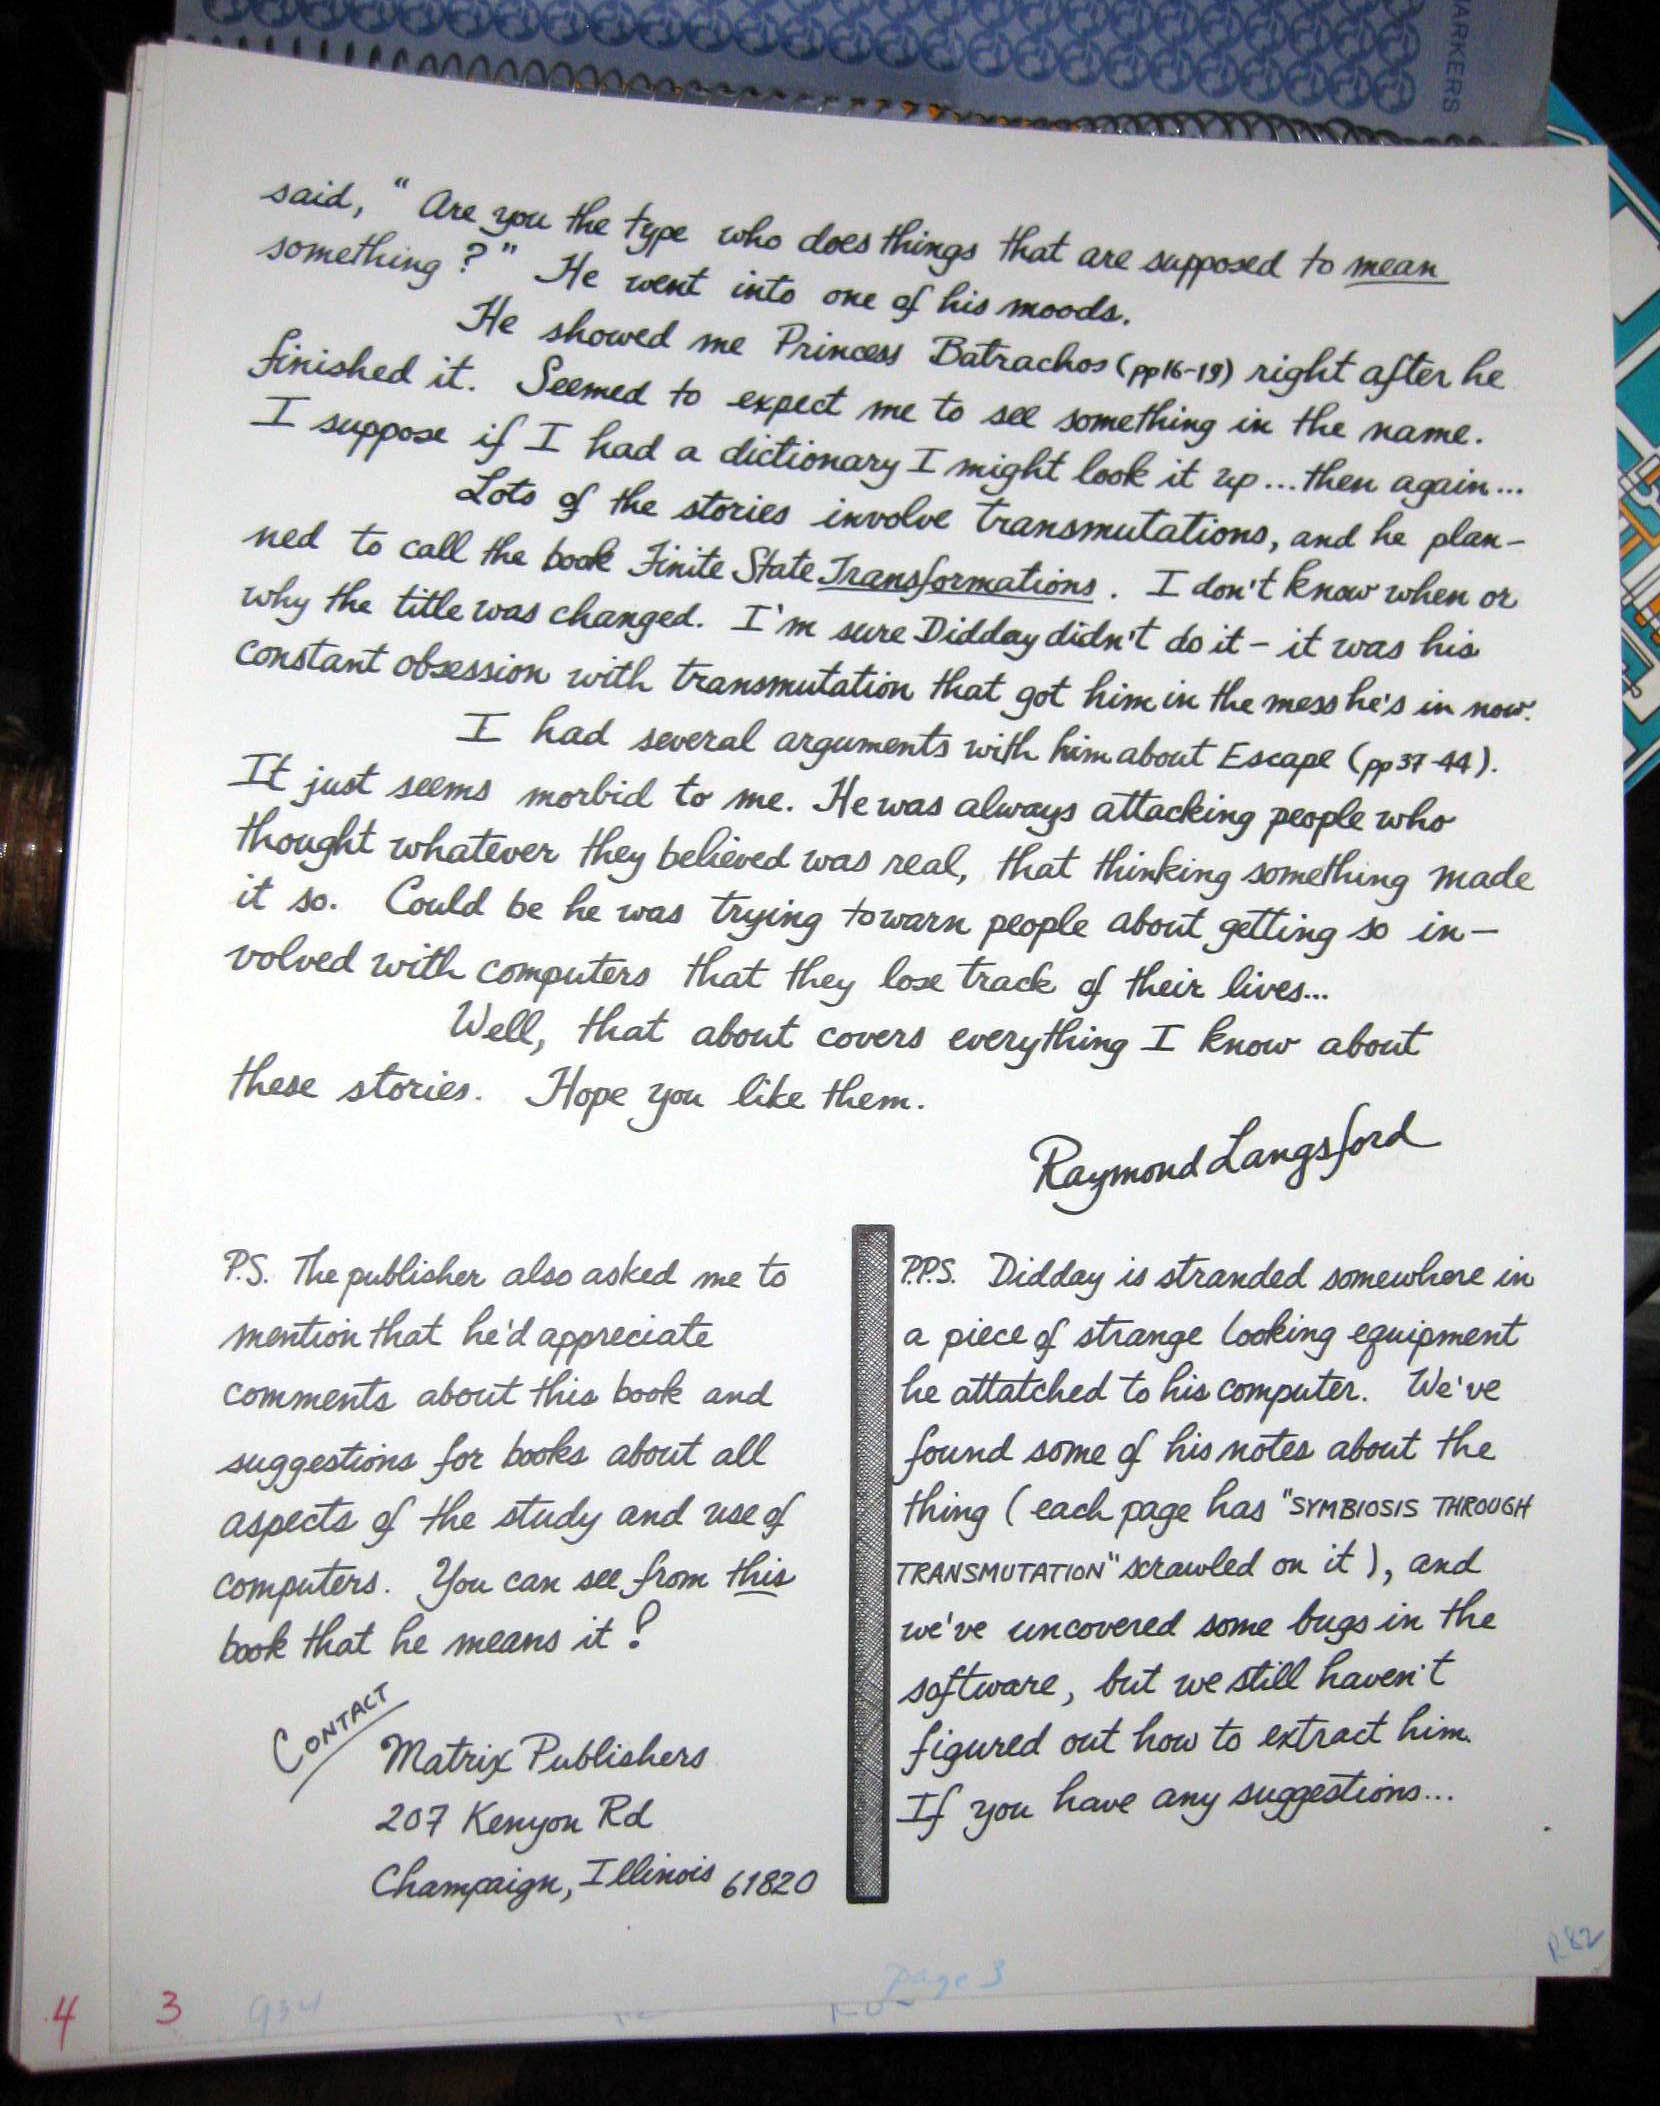 ARKERS
said, "Are you the type who does things that are supposed to mean
something?" He went into one of his moods.
He showed me Princess Batrachos (pp16-19) right after he
finished it. Seemed to expect me to see something in the name.
I suppose if I had a dictionary I might look it up...then again...
Lots of the stories involve transmutations, and he plan-
ned to call the book Finite State Transformations. I don't know when or
why the title was changed. I'm sure Didday didn't do it - it was his
constant obsession with transmutation that got him in the mess he's in now.
I had several arguments with him about Escape (pp37-44).
It just seems morbid to me. He was always attacking people who
thought whatever they believed was real, that thinking something made
it so. Could be he was trying to warn people about getting so in-
volved with computers that they lose track of their lives...
Well, that about covers everything I know about
these stories. Hope you like them.
Raymond Langsford
P.S. The publisher also asked me to
mention that he'd appreciate
comments about this book and
suggestions for books about all
aspects of the study and use of
computers. You can see from this
book that he means it!
CONTACT
Matrix Publishers
207 Kenyon Rd
Champaign, Illinois 61820
P.P.S. Didday is stranded somewhere in
a piece of strange looking equipment
he attatched to his computer. We've
found some of his notes about the
thing (each page has "SYMBIOSIS THROUGH
TRANSMUTATION" scrawled on it), and
we've uncovered some bugs in the
software, but we still haven't
figured out how to extract him.
If you have any suggestions...
R82
page 3
4
3